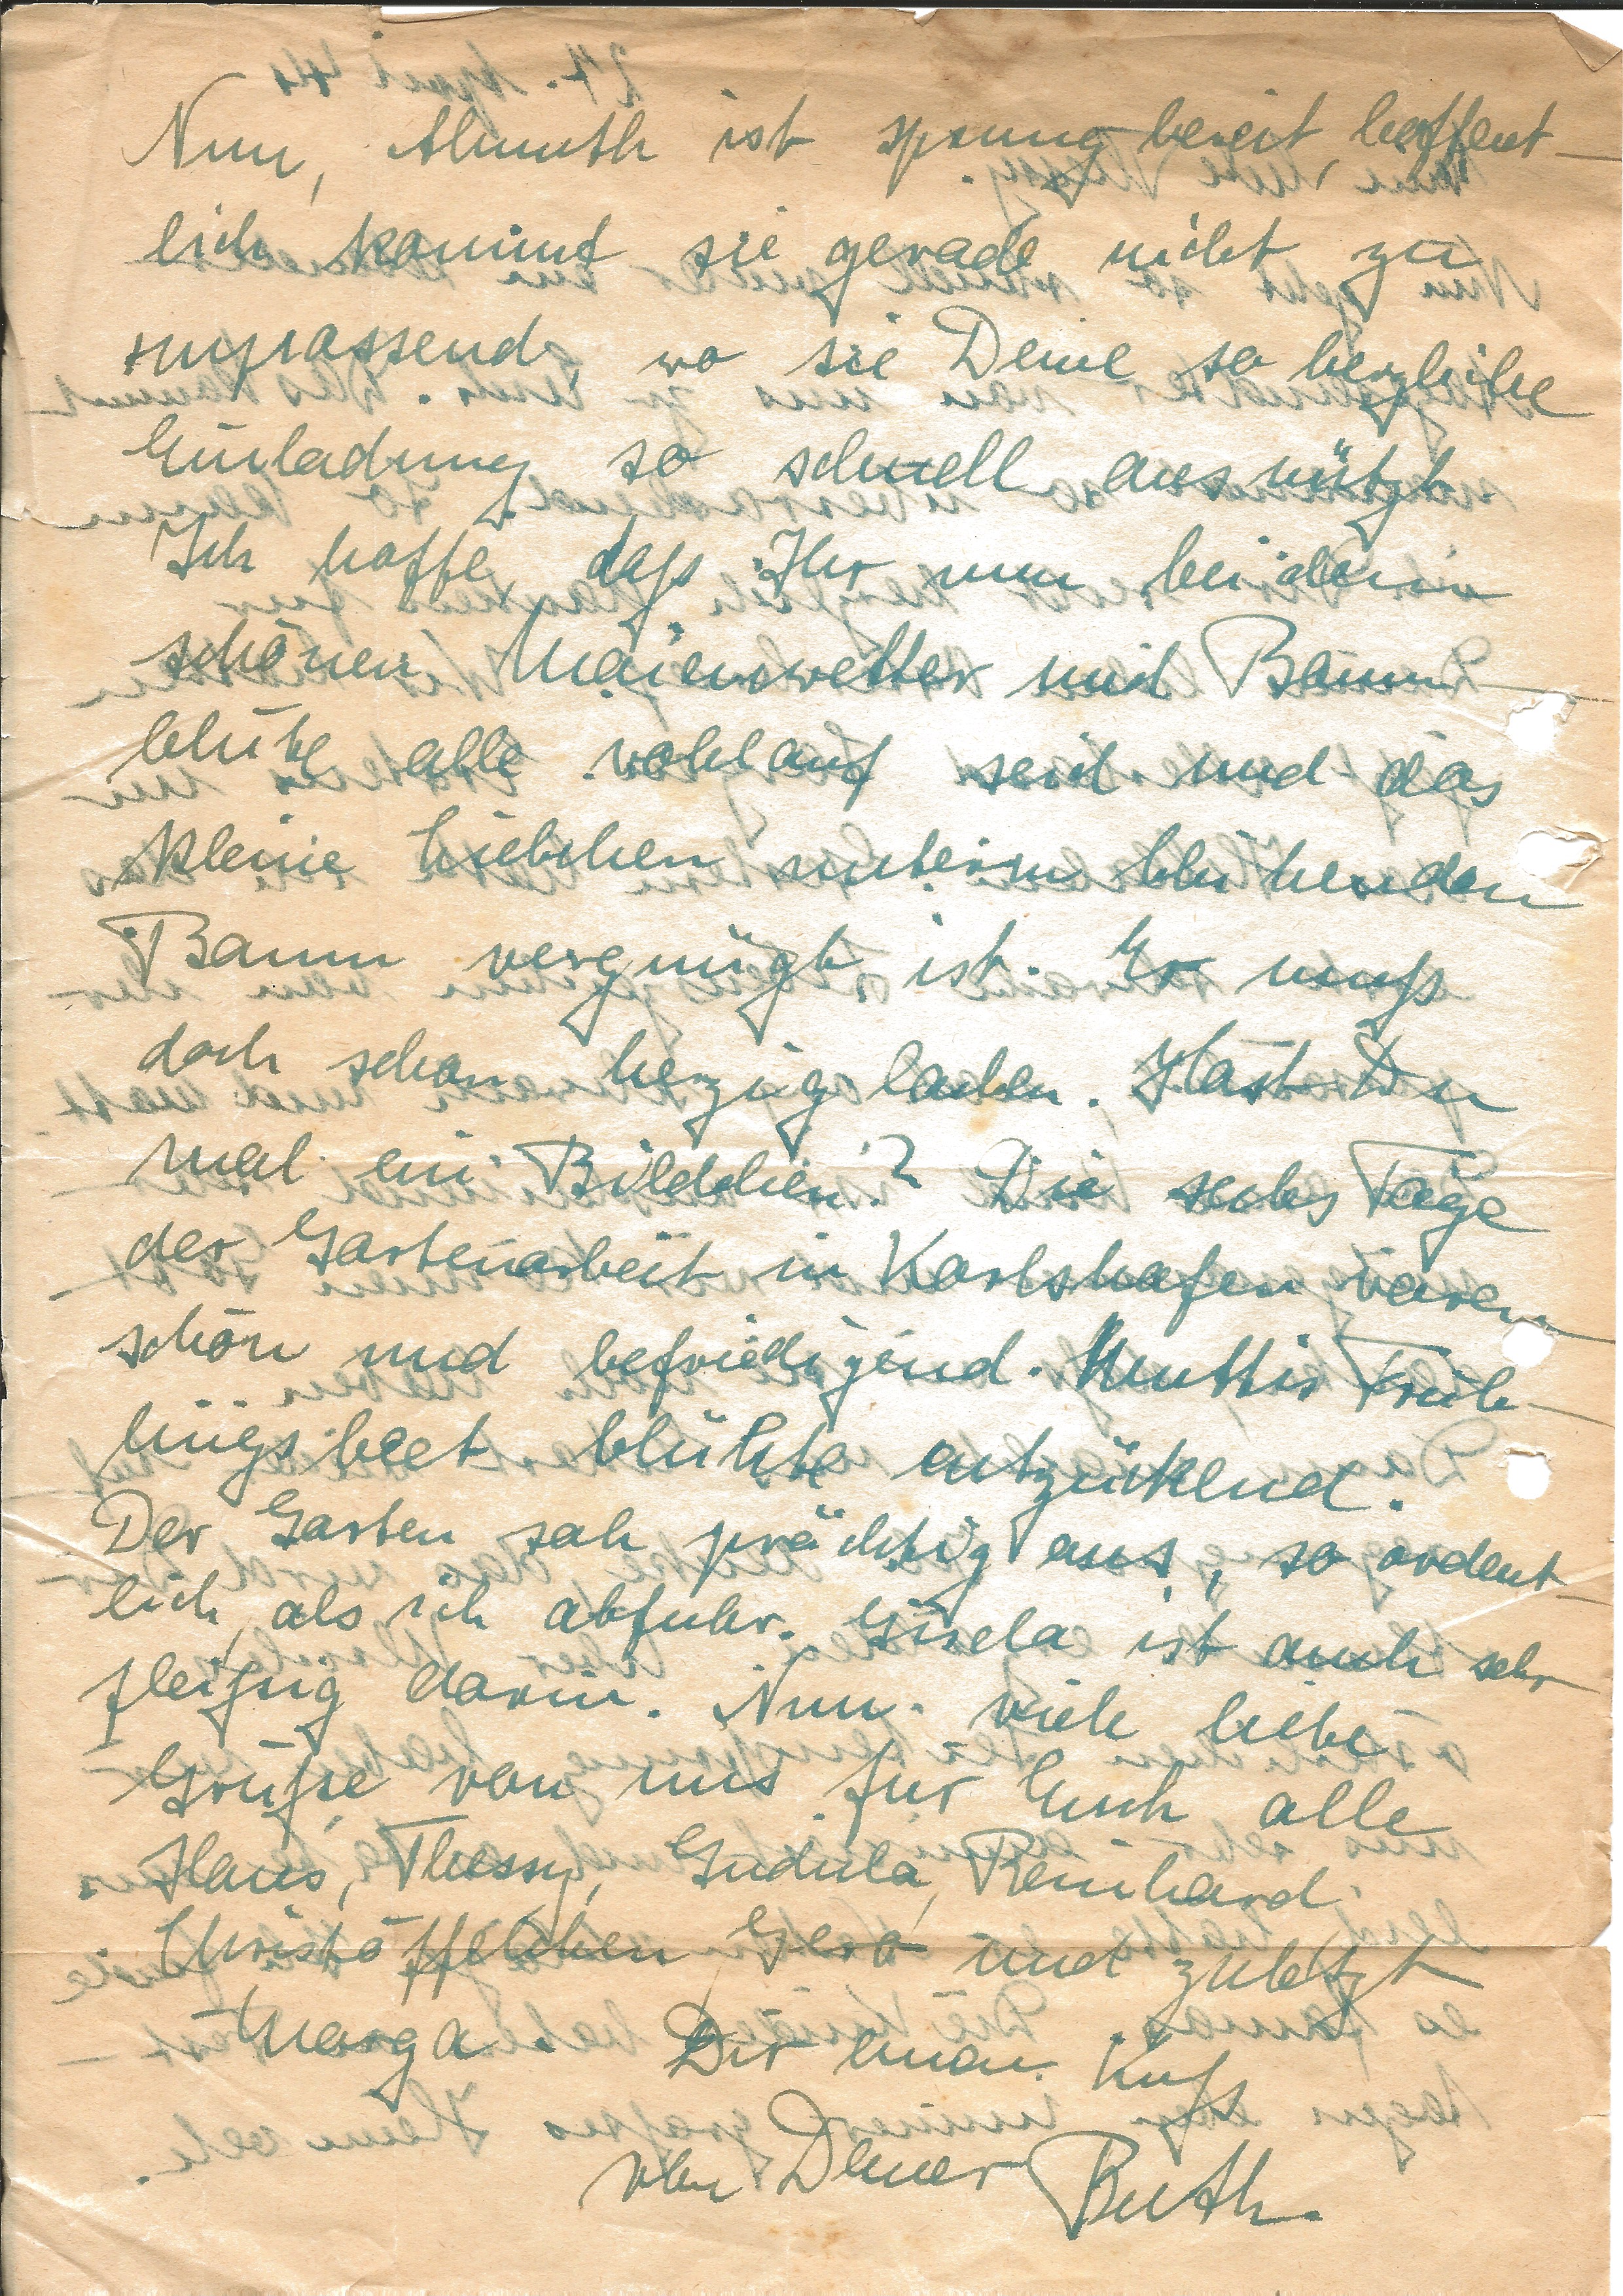 Nun, Almuth ist sprungbereit, hoffent-
lich kommt sie gerade nicht zu
unpassend, wo sie Deine so herzliche
Einladung so schnell ausnützt.
Ich hoffe, daß Ihr nun bei dem
schönen Maienwetter und Baum-
blüte alle wohlauf seid und das
kleine Liebchen unterm blühenden
Baum vergnügt ist. Er muß
doch schon herzig lachen. Hast Du
mal ein Bildchen? Die sechs Tage
der Gartenarbeit in Karlshafen waren
schön und befriedigend. Muttis Früh-
lingsbeet blühte entzückend.
Der Garten sah prächtig aus, so ordent-
lich, als ich abfuhr. Gisela ist auch sehr
fleißig darin. Nun viele liebe
Grüße von uns für Euch alle
Hans, Thessy, Gudula, Reinhard
Christöffelchen Gero und zuletzt
Marga. Dir einen Kuß
von Deiner Ruth.